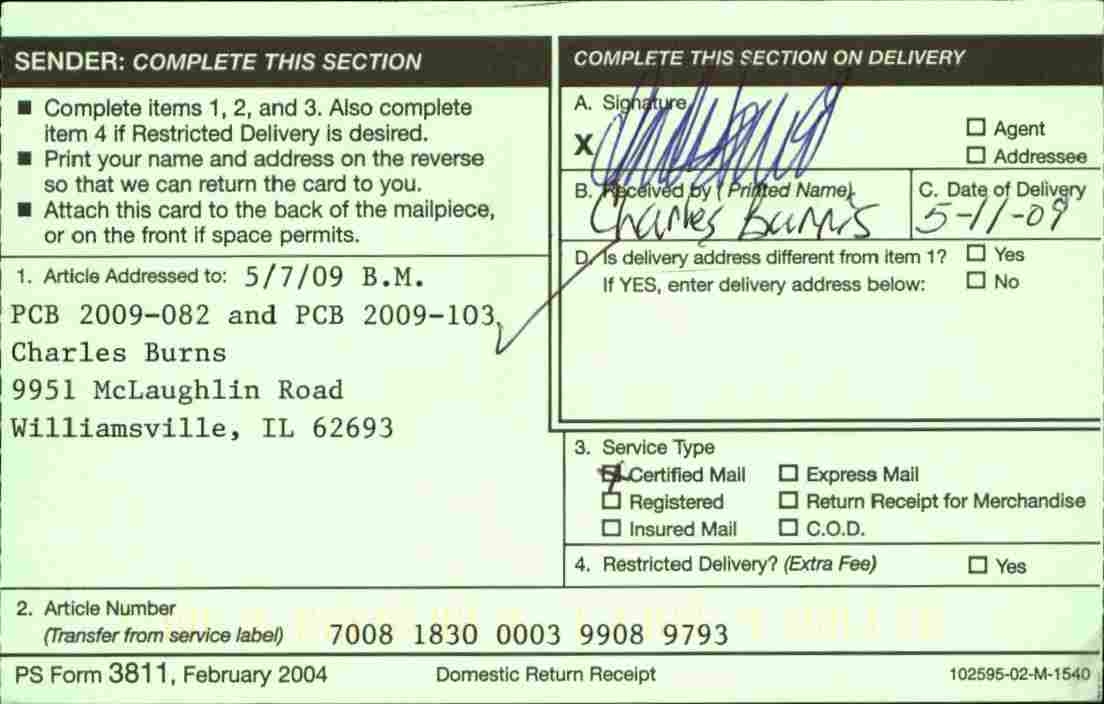 SENDER: COMPLETE THIS SECTION
■ Complete items 1, 2, and 3. Also complete
item 4 if Restricted Delivery is desired.
■ Print your name and address on the reverse
so that we can return the card to you.
■ Attach this card to the back of the mailpiece,
or on the front if space permits.
1. Article Addressed to: 5/7/09 B.M.
PCB 2009-082 and PCB 2009-103
Charles Burns
9951 McLaughlin Road
Williamsville, IL 62693
COMPLETE THIS SECTION ON DELIVERY
A. Signature
X
☐ Agent
☐ Addressee
B. Received by (Printed Name)
Charles Burns
C. Date of Delivery
5-11-09
D. Is delivery address different from item 1? ☐ Yes
If YES, enter delivery address below: ☐ No
3. Service Type
☒ Certified Mail ☐ Express Mail
☐ Registered ☐ Return Receipt for Merchandise
☐ Insured Mail ☐ C.O.D.
4. Restricted Delivery? (Extra Fee) ☐ Yes
2. Article Number
(Transfer from service label) 7008 1830 0003 9908 9793
PS Form 3811, February 2004 Domestic Return Receipt 102595-02-M-1540